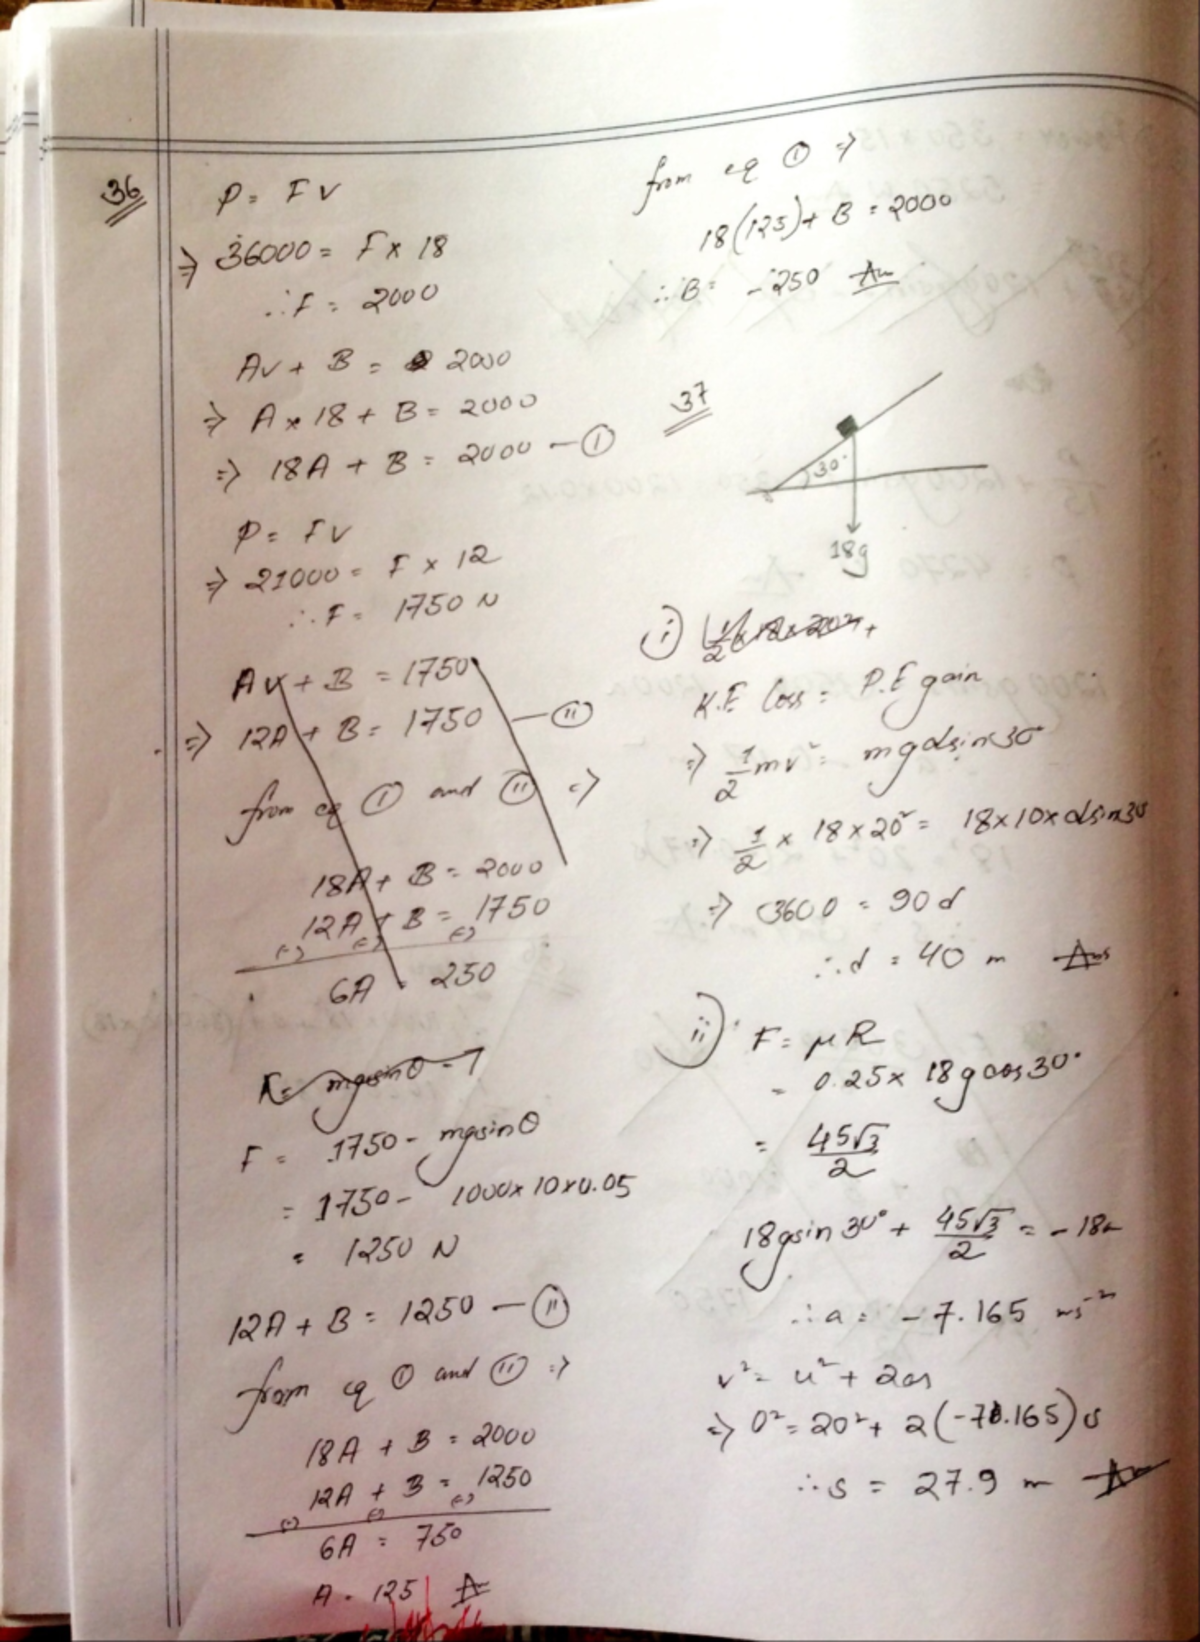 36
P = Fv
⇒ 36000 = F × 18
∴ F = 2000
Av + B = 2000
⇒ A × 18 + B = 2000
⇒ 18A + B = 2000 — (i)
P = Fv
⇒ 21000 = F × 12
∴ F = 1750 N
Av + B = 1750
⇒ 12A + B = 1750 — (ii)
from eq (i) and (ii) ⇒
18A + B = 2000
12A + B = 1750
(-) (-) (-)
6A = 250
mgsinθ
F = 1750 - mgsinθ
= 1750 - 1000×10×0.05
= 1250 N
12A + B = 1250 — (ii)
from eq (i) and (ii) ⇒
18A + B = 2000
12A + B = 1250
(-) (-) (-)
6A = 750
A = 125 Ans
from eq (i) ⇒
18(125) + B = 2000
∴ B = -250 Ans
37
30°
18g
i) 1/2 × 18 × 20² +
K.E loss = P.E gain
⇒ 1/2 mv² = mgdsin30
⇒ 1/2 × 18 × 20² = 18×10×dsin30
⇒ 3600 = 90d
∴ d = 40 m Ans
ii) F = μR
= 0.25 × 18gcos30°
= 45√3/2
18gsin30° + 45√3/2 = -18a
∴ a = -7.165 ms⁻²
v² = u² + 2as
⇒ 0² = 20² + 2(-7.165)s
∴ s = 27.9 m Ans